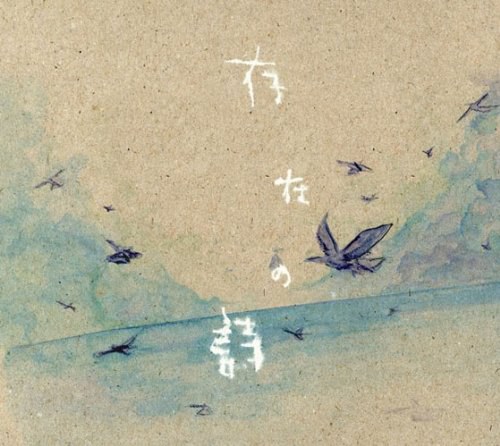 存在の詩